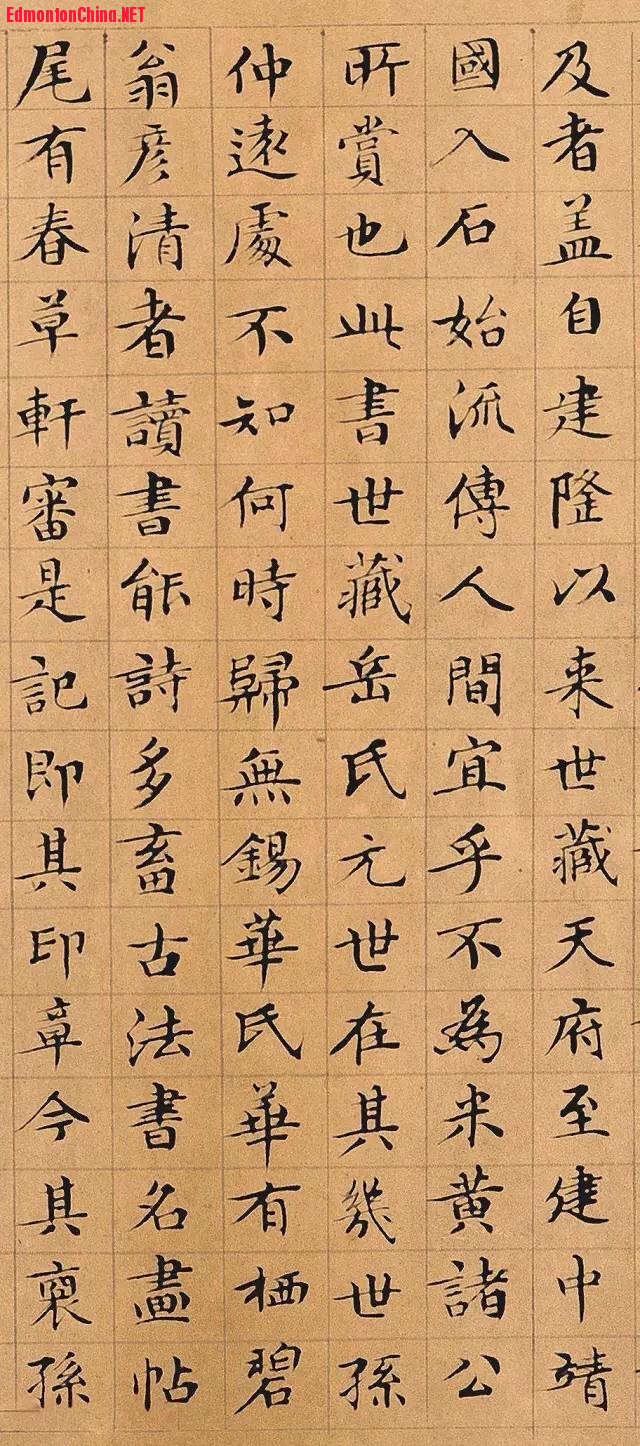 EdmontonChina.NET
及者盖自建隆以来世藏天府至建中靖
國入石始流傳人間宜乎不為米黄諸公
所賞也此書世藏岳氏元世在其幾世孫
仲遠處不知何時歸無錫華氏華有栖碧
翁彦清者讀書能詩多畜古法書名畫帖
尾有春草軒審是記即其印章今其裔孫